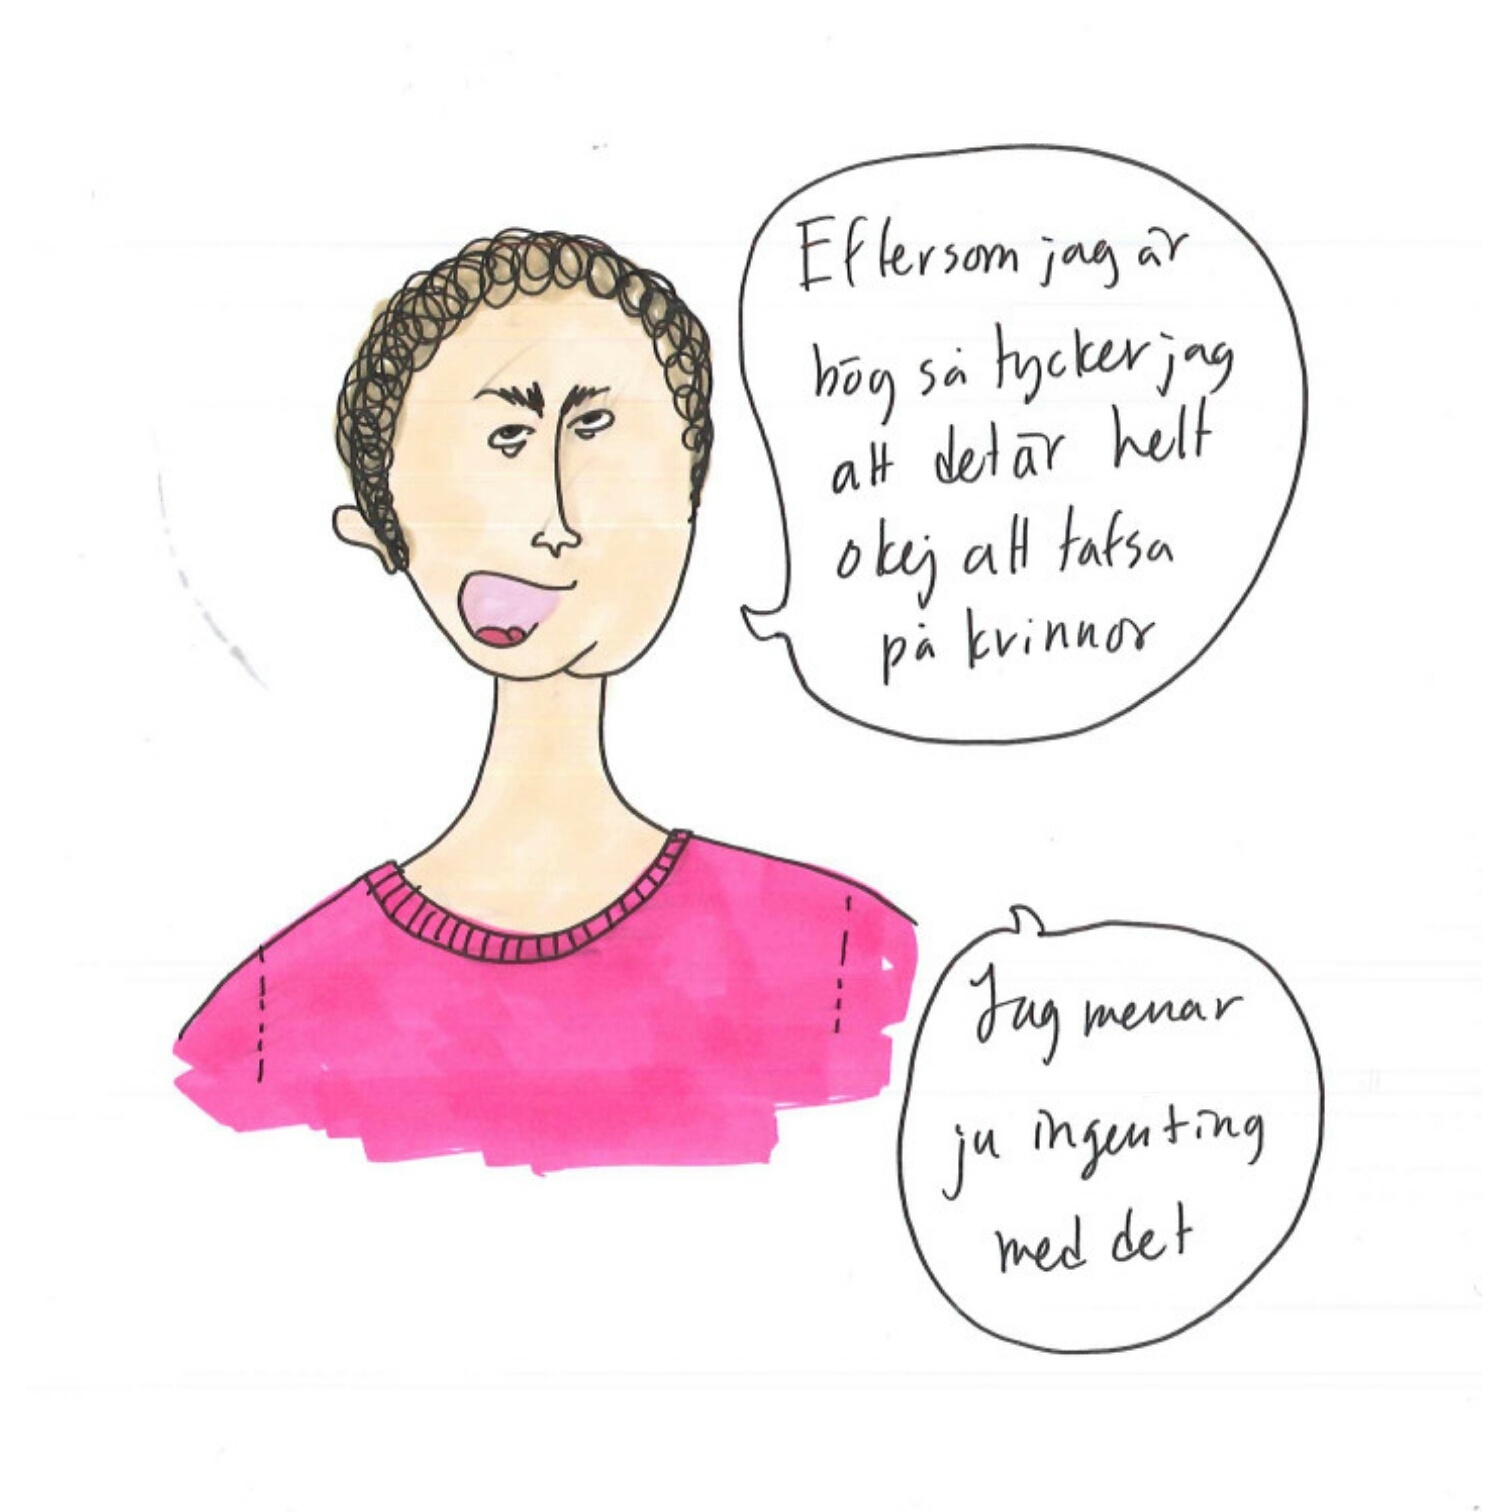 Eftersom jag är
bög så tycker jag
att det är helt
okej att tafsa
på kvinnor
Jag menar
ju ingenting
med det